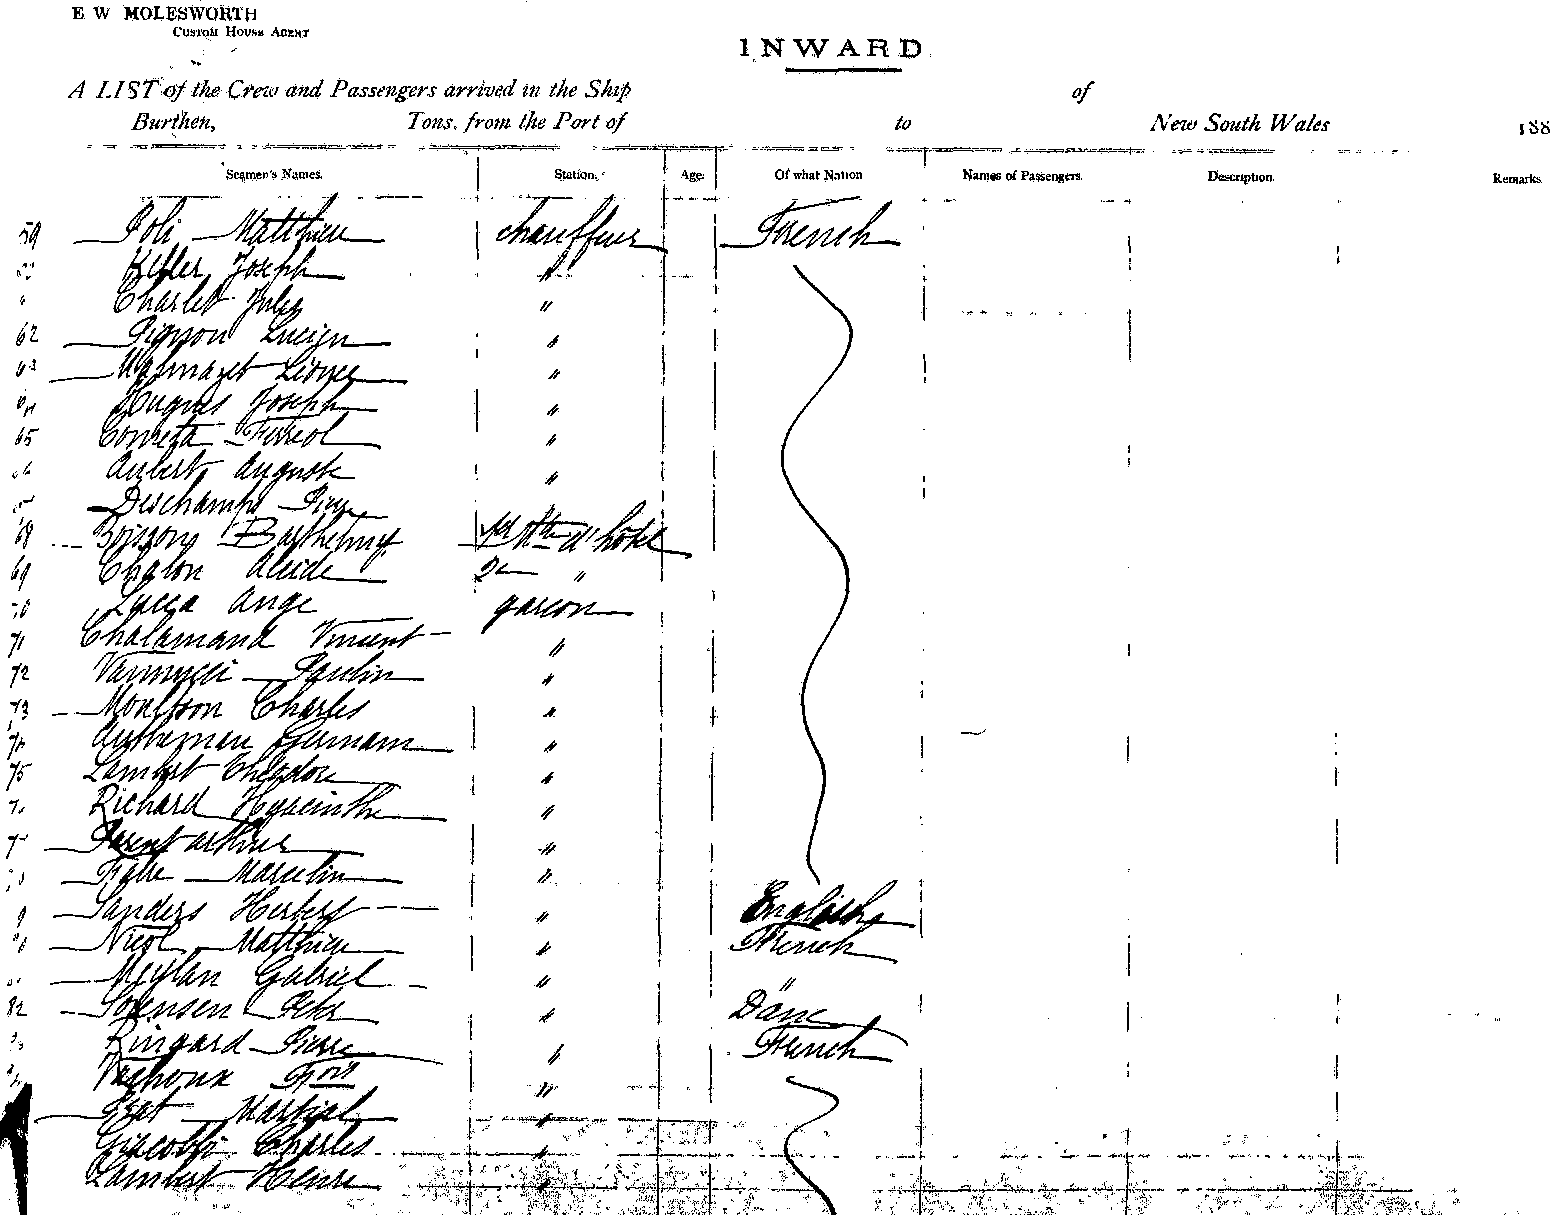 E W MOLESWORTH
CUSTOM HOUSE AGENT
INWARD
A LIST of the Crew and Passengers arrived in the Ship of
Burthen, Tons, from the Port of to New South Wales 188
Seamen's Names. Station. Age. Of what Nation Names of Passengers. Description. Remarks
59 Poli Matthieu chauffeur French
Keller Joseph "
" Charlet Jules "
62 Pignon Lucien "
63 "
Hugues Joseph "
65 Cometa Ferreol "
Aubert Auguste "
Deschamps Pierre
68 Boissong Barthelmy 1er Mtre d'hôtel
69 Chalon Alcide 2e "
Lucca Ange garcon
71 Chalamand Vincent "
72 Vannucci Paulin "
73 Charles "
74 Germain "
75 Lambert Theodore "
Richard Hyacinthe "
Parent arthur "
Fabre Marcelin "
9 Sanders Herbert " English
Nicol Matthieu " French
Meylan Gabriel " "
82 Sorensen Peter " Dane
Ringard Pierre " French
Fçois "
Martial "
Giacobbi Charles "
Lambert Henri "